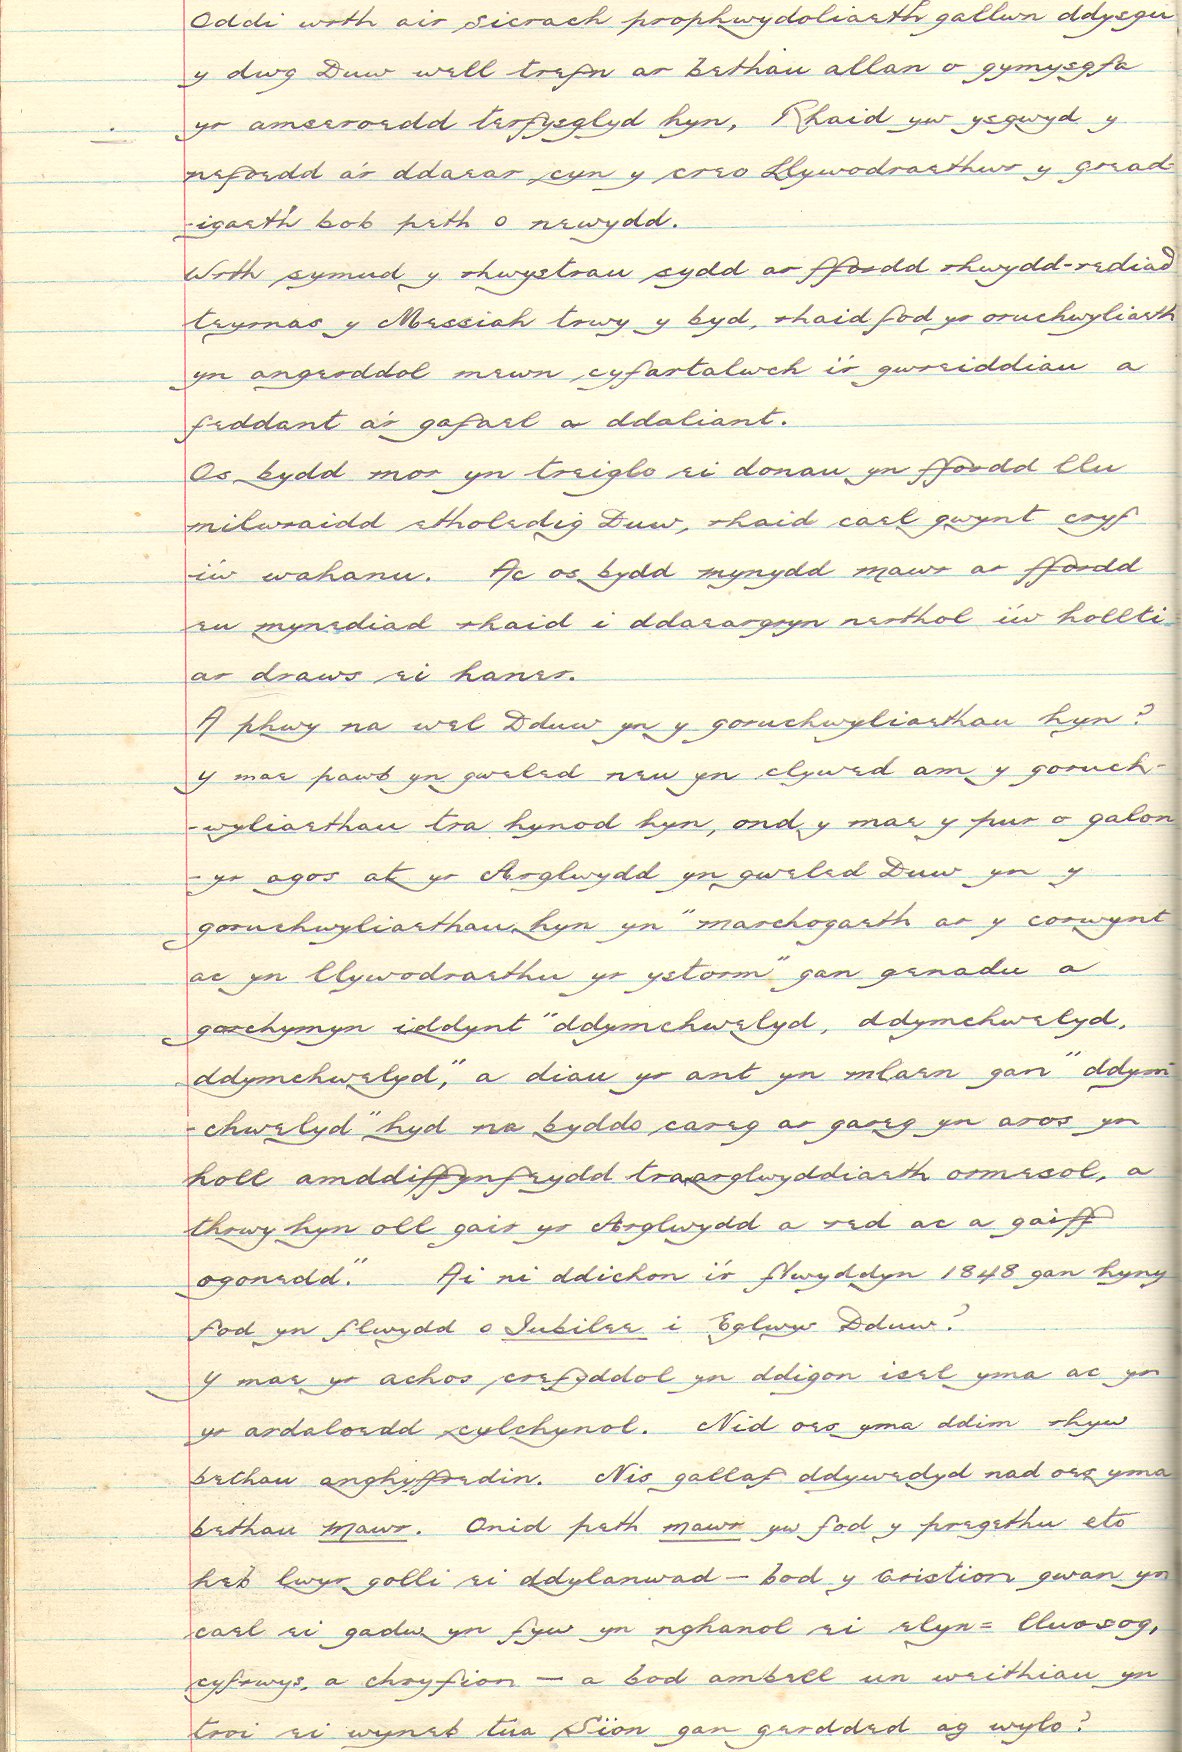 Oddi wrth air sicrach prophwydoliaeth gallwn ddysgu
y dwg Duw well trefn ar bethau allan o gymysgfa
yr amseroedd terfysglyd hyn. Rhaid yw ysgwyd y
nefoedd a'r ddaear cyn y creo Llywodraethwr y gread-
-igaeth bob peth o newydd.
Wrth symud y rhwystrau sydd ar ffordd rhwydd-rediad
teyrnas y Messiah trwy y byd, rhaid fod yr oruchwyliaeth
yn angerddol mewn cyfartalwch i'r gwreiddiau a
feddant a'r gafael a ddaliant.
Os bydd mor yn treiglo ei donau yn ffordd llu
milwraidd etholedig Duw, rhaid cael gwynt cryf
i'w wahanu. Ac os bydd mynydd mawr ar ffordd
eu mynediad rhaid i ddaeargryn nerthol i'w hollti
ar draws ei haner.
A phwy na wel Dduw yn y goruchwyliaethau hyn?
Y mae pawb yn gweled neu yn clywed am y goruch-
-wyliaethau tra hynod hyn, ond y mae y pur o galon
- yr agos at yr Arglwydd yn gweled Duw yn y
goruchwyliaethau hyn yn "marchogaeth ar y corwynt
ac yn llywodraethu yr ystorm" gan genadu a
gorchymyn iddynt "ddymchwelyd, ddymchwelyd,
ddymchwelyd," a diau yr ant yn mlaen gan "ddym-
-chwelyd" hyd na byddo careg ar gareg yn aros yn
holl amddiffynfeydd traarglwyddiaeth ormesol, a
thrwy hyn oll gair yr Arglwydd a red ac a gaiff
ogonedd". Ai ni ddichon i'r flwyddyn 1848 gan hyny
fod yn flwydd o Iubilee i Eglwys Dduw?
Y mae yr achos crefyddol yn ddigon isel yma ac yn
yr ardaloedd cylchynol. Nid oes yma ddim rhyw
bethau anghyffredin. Nis gallaf ddywedyd nad oes yma
bethau mawr. Onid peth mawr yw fod y pregethu eto
heb lwyr golli ei ddylanwad — bod y Cristion gwan yn
cael ei gadw yn fyw yn nghanol ei elyn= lluosog,
cyfrwys, a chryfion — a bod ambell un weithiau yn
troi ei wyneb tua Sïon gan gerdded ag wylo?